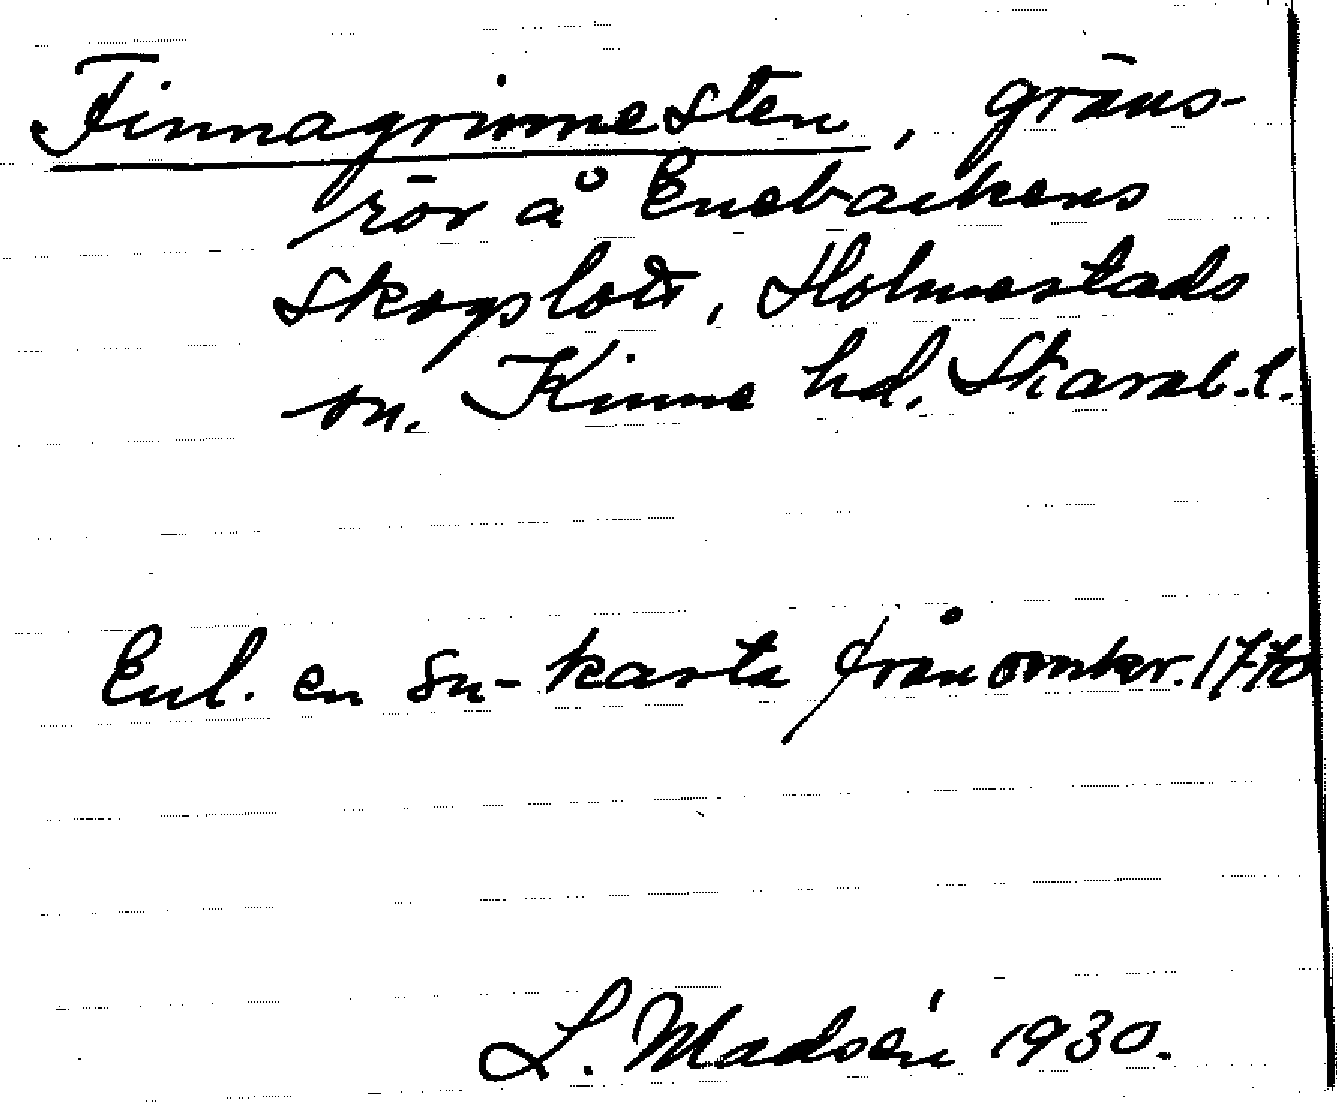 Finnagrimmesten, gräns-
rör å Enebackens
Skogslott, Holmestads
sn. Kinne hd. Skarab. l.
Enl. en sn-karta från omkr. 1770
L. Madsén 1930.